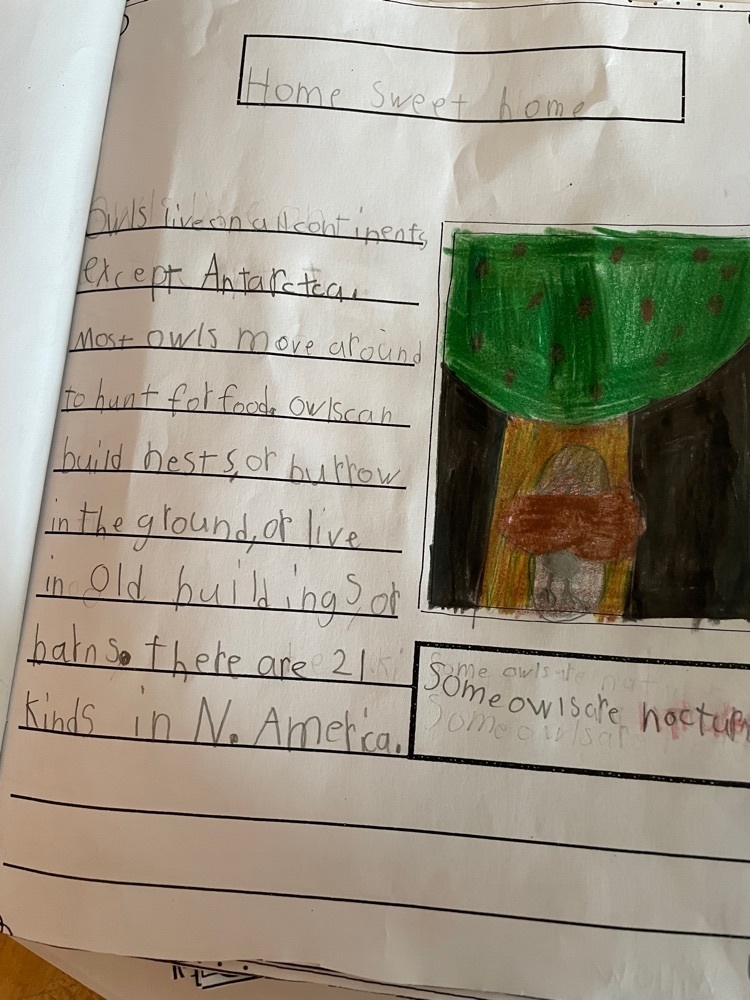 Home sweet home
Owls live on all continents,
except Antarctca.
Most owls move around
to hunt for food. owls can
build nests, or burrow
in the ground, or live
in old buildings, or
barns. there are 21
kinds in N. America.
Some owls are nocturn